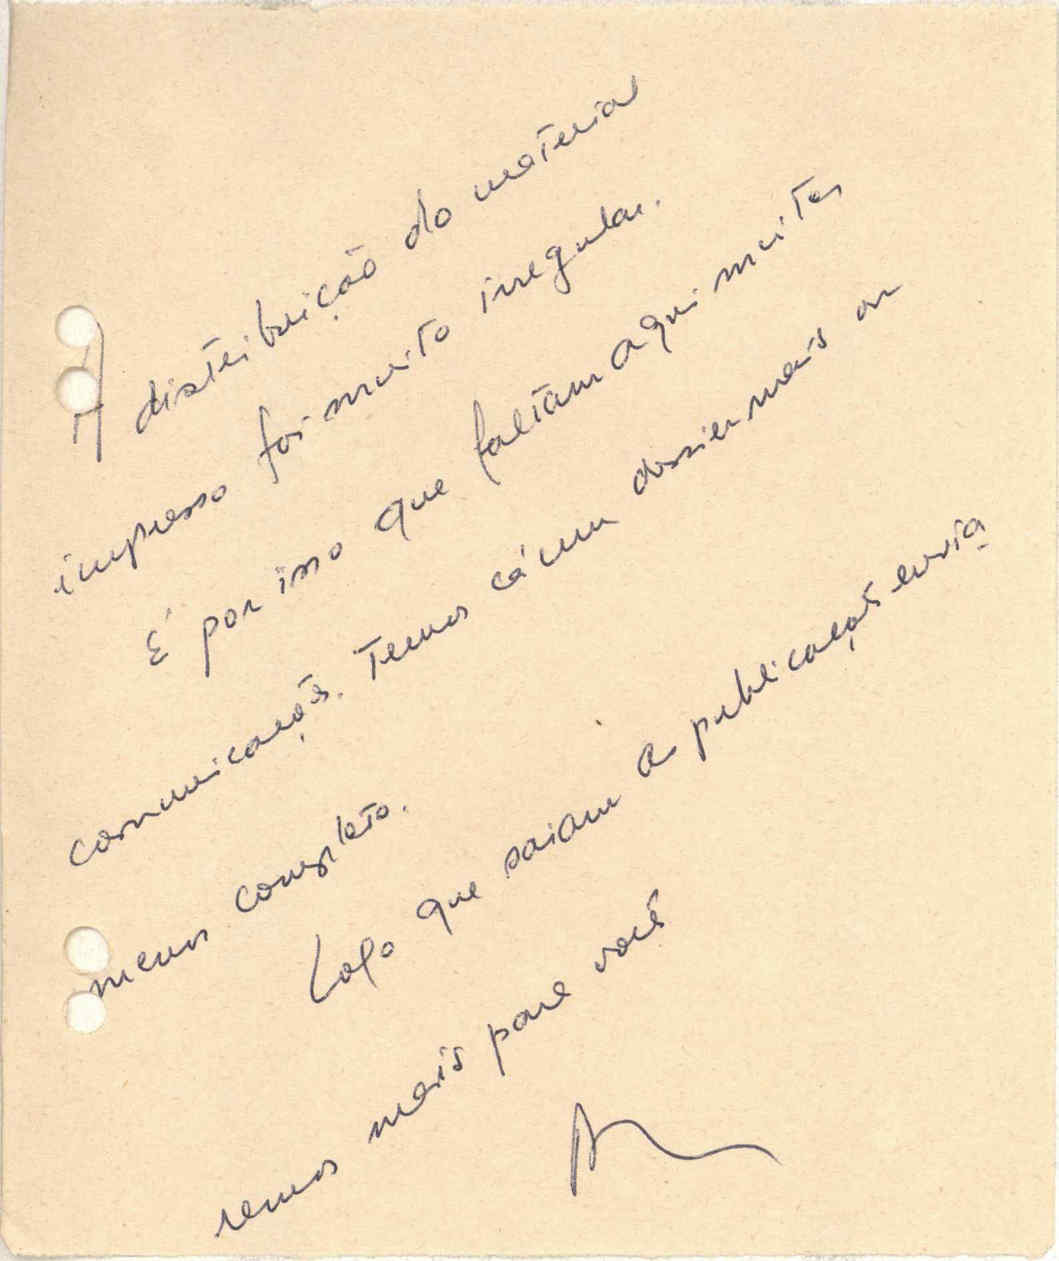 A distribuição do material
impresso foi muito irregular.
É por isso que faltam aqui muitas
comunicações. Temos cá um dossier mais ou
menos completo.
Logo que saiam as publicações envia
remos mais para você